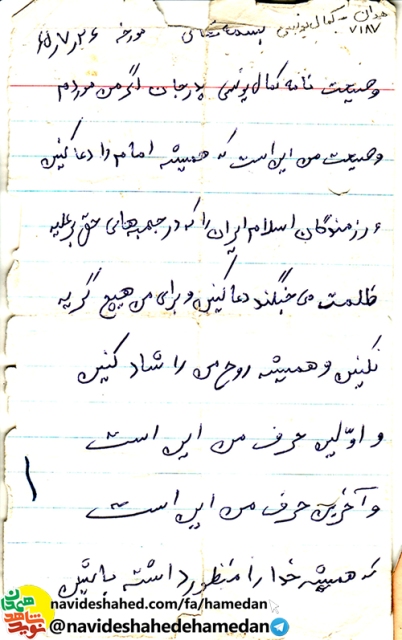 همدان - کمال یونسی
۷۱۸۷
بسمه تعالی
مورخه ۶۵/۷/۲۶
وضیعت نامه کمال یونسی پدر جان اگر من مردم
وصیعت من این است که همیشه امام را دعا کنین
و رزمندگان اسلام ایران را که در جبهه های حق بر علیه
ظلمت می جنگند دعا کنین و برای من هیچ گریه
نکنین و همیشه روح من را شاد کنین
و اوّلین حرف من این است
و آخرین حرف من این است
که همیشه خدا را منظور داشته باشین
۱
نوید شاهد
همدان
navideshahed.com/fa/hamedan
@navideshahedehamedan